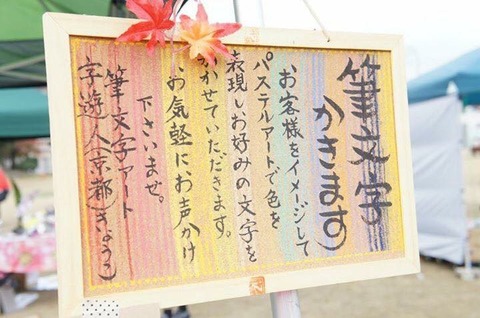 筆文字
かきます)
お客様をイメージして
パステルアートで色を
表現しお好みの文字を
かかせていただきます。
お気軽にお声かけ
下さいませ。
筆文字アート
字遊人京都(きょうこ)